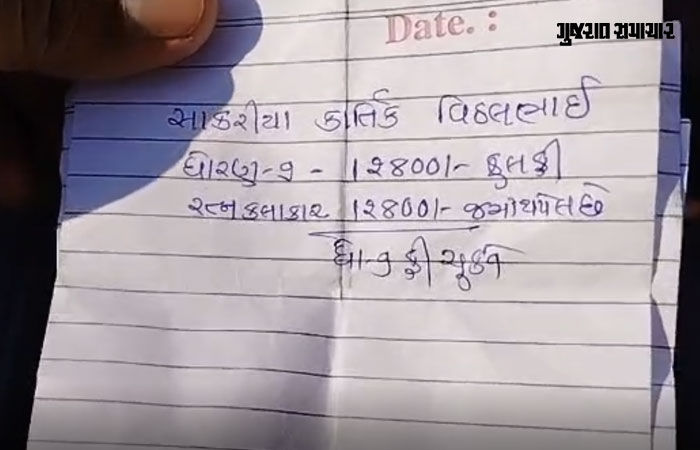 ગુજરાત સમાચાર
Date. :
સાકરીયા કાર્તિક વિઠલભાઈ
ધોરણ-૭ - ૧૨૪૦૦/- કુલ ફી
રત્નકલાકાર ૧૨૪૦૦/- જમા થયેલ છે
ધો-૭ ફી ચૂકતે